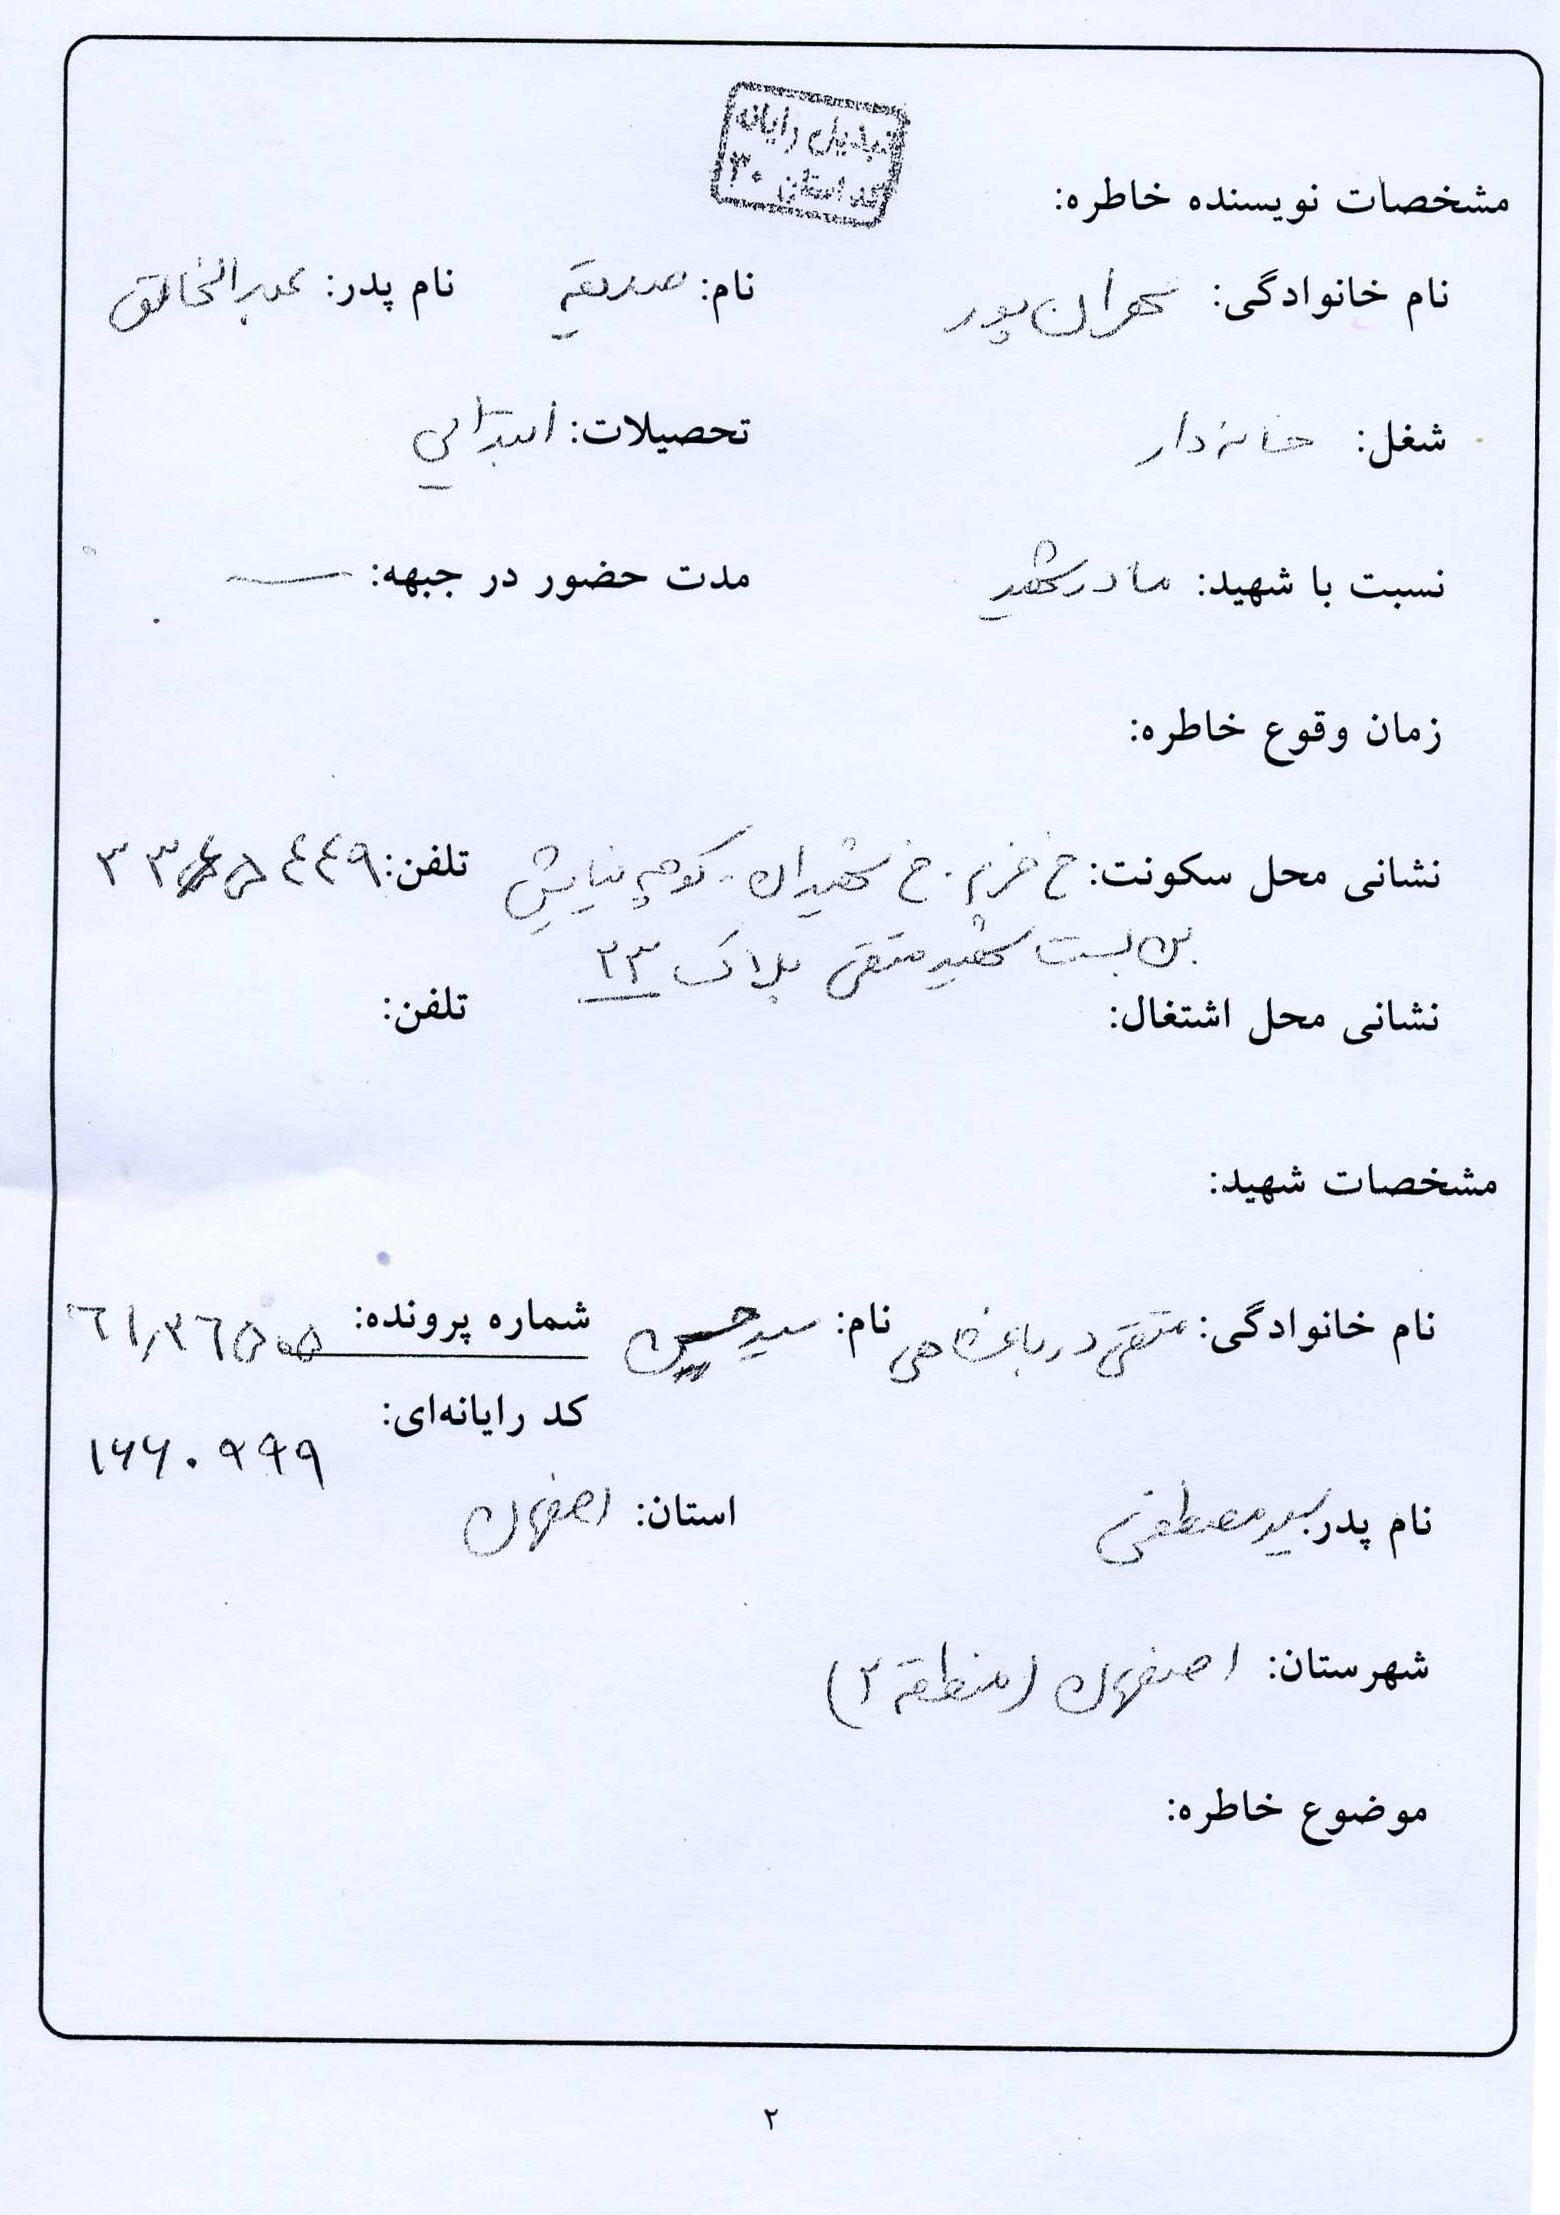 تبدیل رایانه
کد استان ۳۰
مشخصات نویسنده خاطره:
نام خانوادگی: مهران پور نام: صدیقه نام پدر: عبدالخالق
شغل: خانه دار تحصیلات: ابتدایی
نسبت با شهید: مادر شهید مدت حضور در جبهه: —
زمان وقوع خاطره:
نشانی محل سکونت: خ خرم . خ شهیدان - کوچه نیایش تلفن:
بن بست شهید متقی پلاک ۲۳
نشانی محل اشتغال: تلفن:
مشخصات شهید:
نام خانوادگی: متقی درباغشاهی نام: سید حسین شماره پرونده:
کد رایانه‌ای: ۱۶۶۰۹۹۹
نام پدر: سید مصطفی استان: اصفهان
شهرستان: اصفهان (منطقه ۲)
موضوع خاطره:
۲